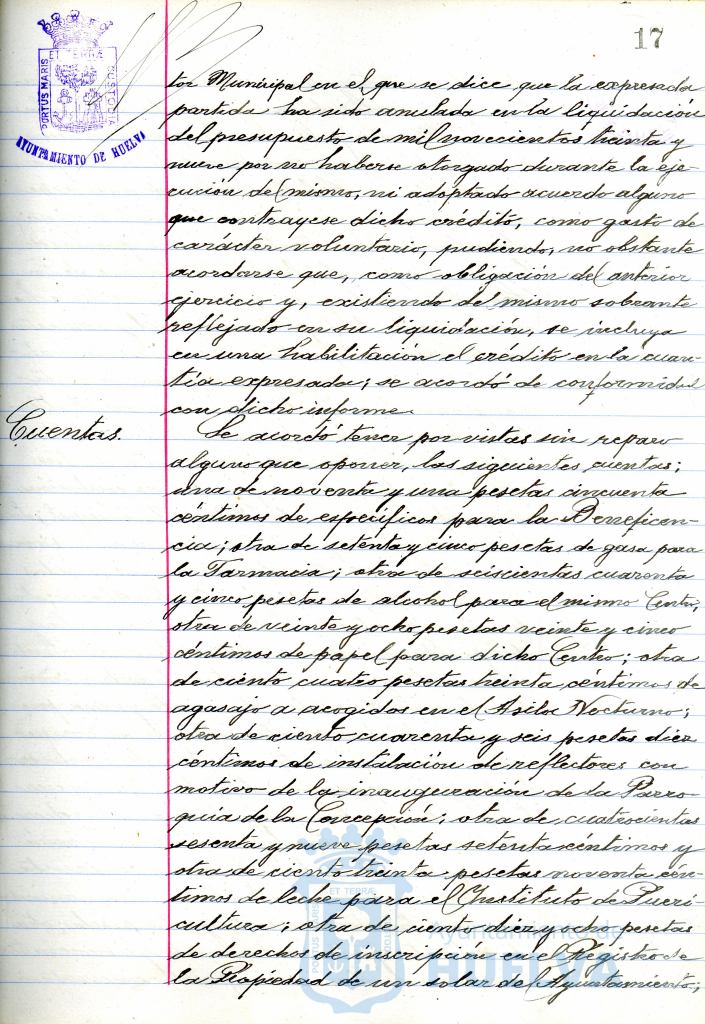 17
PORTUS MARIS ET TERRÆ CUSTODIA
AYUNTAMIENTO DE HUELVA
tor Municipal en el que se dice que la expresada
partida ha sido anulada en la liquidación
del presupuesto de mil novecientos treinta y
nueve por no haberse otorgado durante la eje-
cución del mismo, ni adoptado acuerdo alguno
que contrayese dicho crédito, como gasto de
carácter voluntario, pudiendo, no obstante
acordarse que, como obligación del anterior
ejercicio y, existiendo del mismo sobrante
reflejado en su liquidación, se incluya
en una habilitación el crédito en la cuan-
tía expresada; se acordó de conformidad
con dicho informe.
Cuentas.
Se acordó tener por vistas sin reparo
alguno que oponer, las siguientes cuentas;
una de noventa y una pesetas cincuenta
céntimos de específicos para la Beneficen-
cia; otra de setenta y cinco pesetas de gasa para
la Farmacia; otra de seiscientas cuarenta
y cinco pesetas de alcohol para el mismo Centro;
otra de veinte y ocho pesetas veinte y cinco
céntimos de papel para dicho Centro; otra
de ciento cuatro pesetas treinta céntimos de
agasajo a acogidos en el Asilo Nocturno;
otra de ciento cuarenta y seis pesetas diez
céntimos de instalación de reflectores con
motivo de la inauguración de la Parro-
quia de la Concepción; otra de cuatrocientas
sesenta y nueve pesetas setenta céntimos y
otra de ciento treinta pesetas noventa cén-
timos de leche para el Instituto de Pueri-
cultura; otra de ciento diez y ocho pesetas
de derechos de inscripción en el Registro de
la Propiedad de un solar del Ayuntamiento;
PORTUS MARIS ET TERRÆ CUSTODIA
Ayuntamiento de
HUELVA